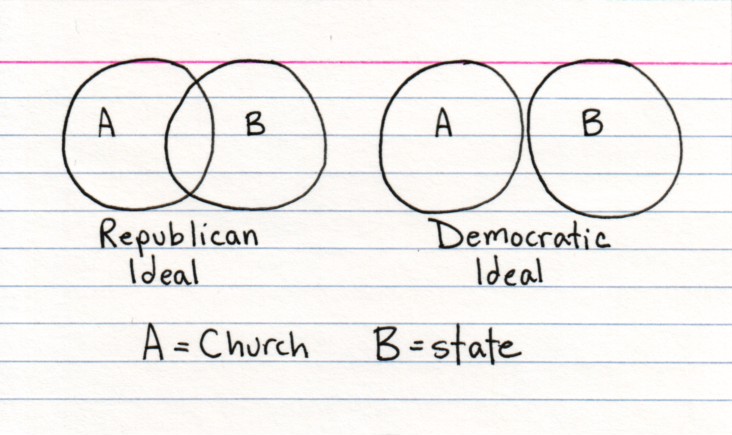 A B A B
Republican Democratic
Ideal Ideal
A = Church B = state